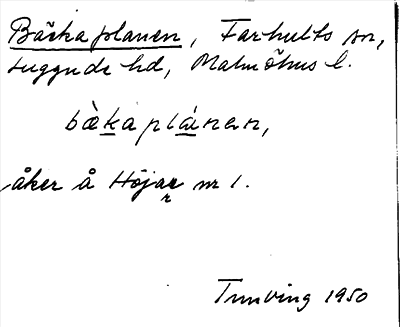 Bäckaplanen, Farhults sn,
Luggude hd, Malmöhus l.
bὲkaplánɐn,
åker å Höjar nr 1.
r
Tunving 1950